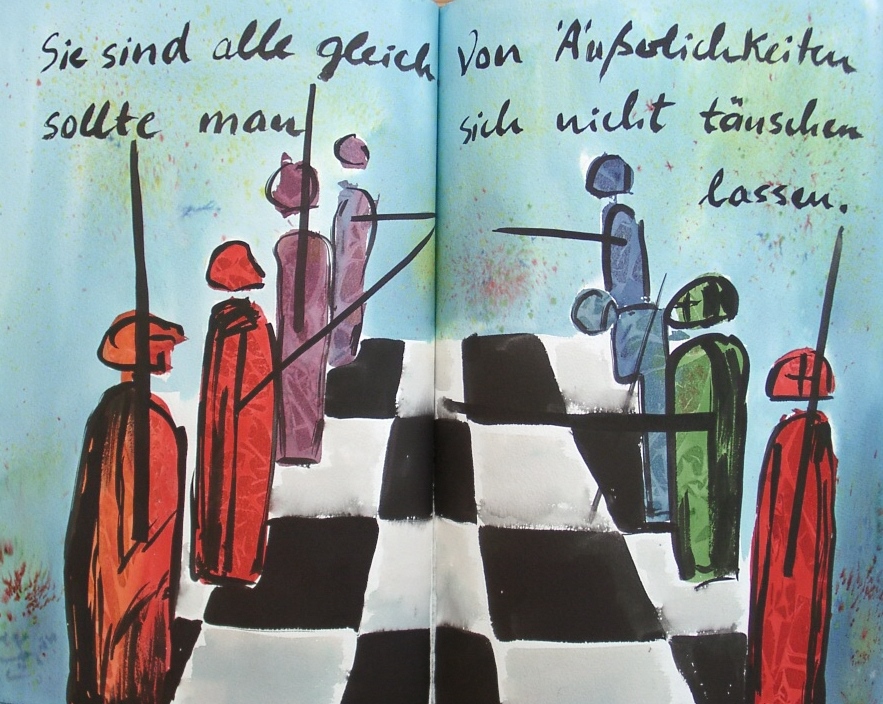 Sie sind alle gleich Von Äußerlichkeiten
sollte man sich nicht täuschen
lassen.